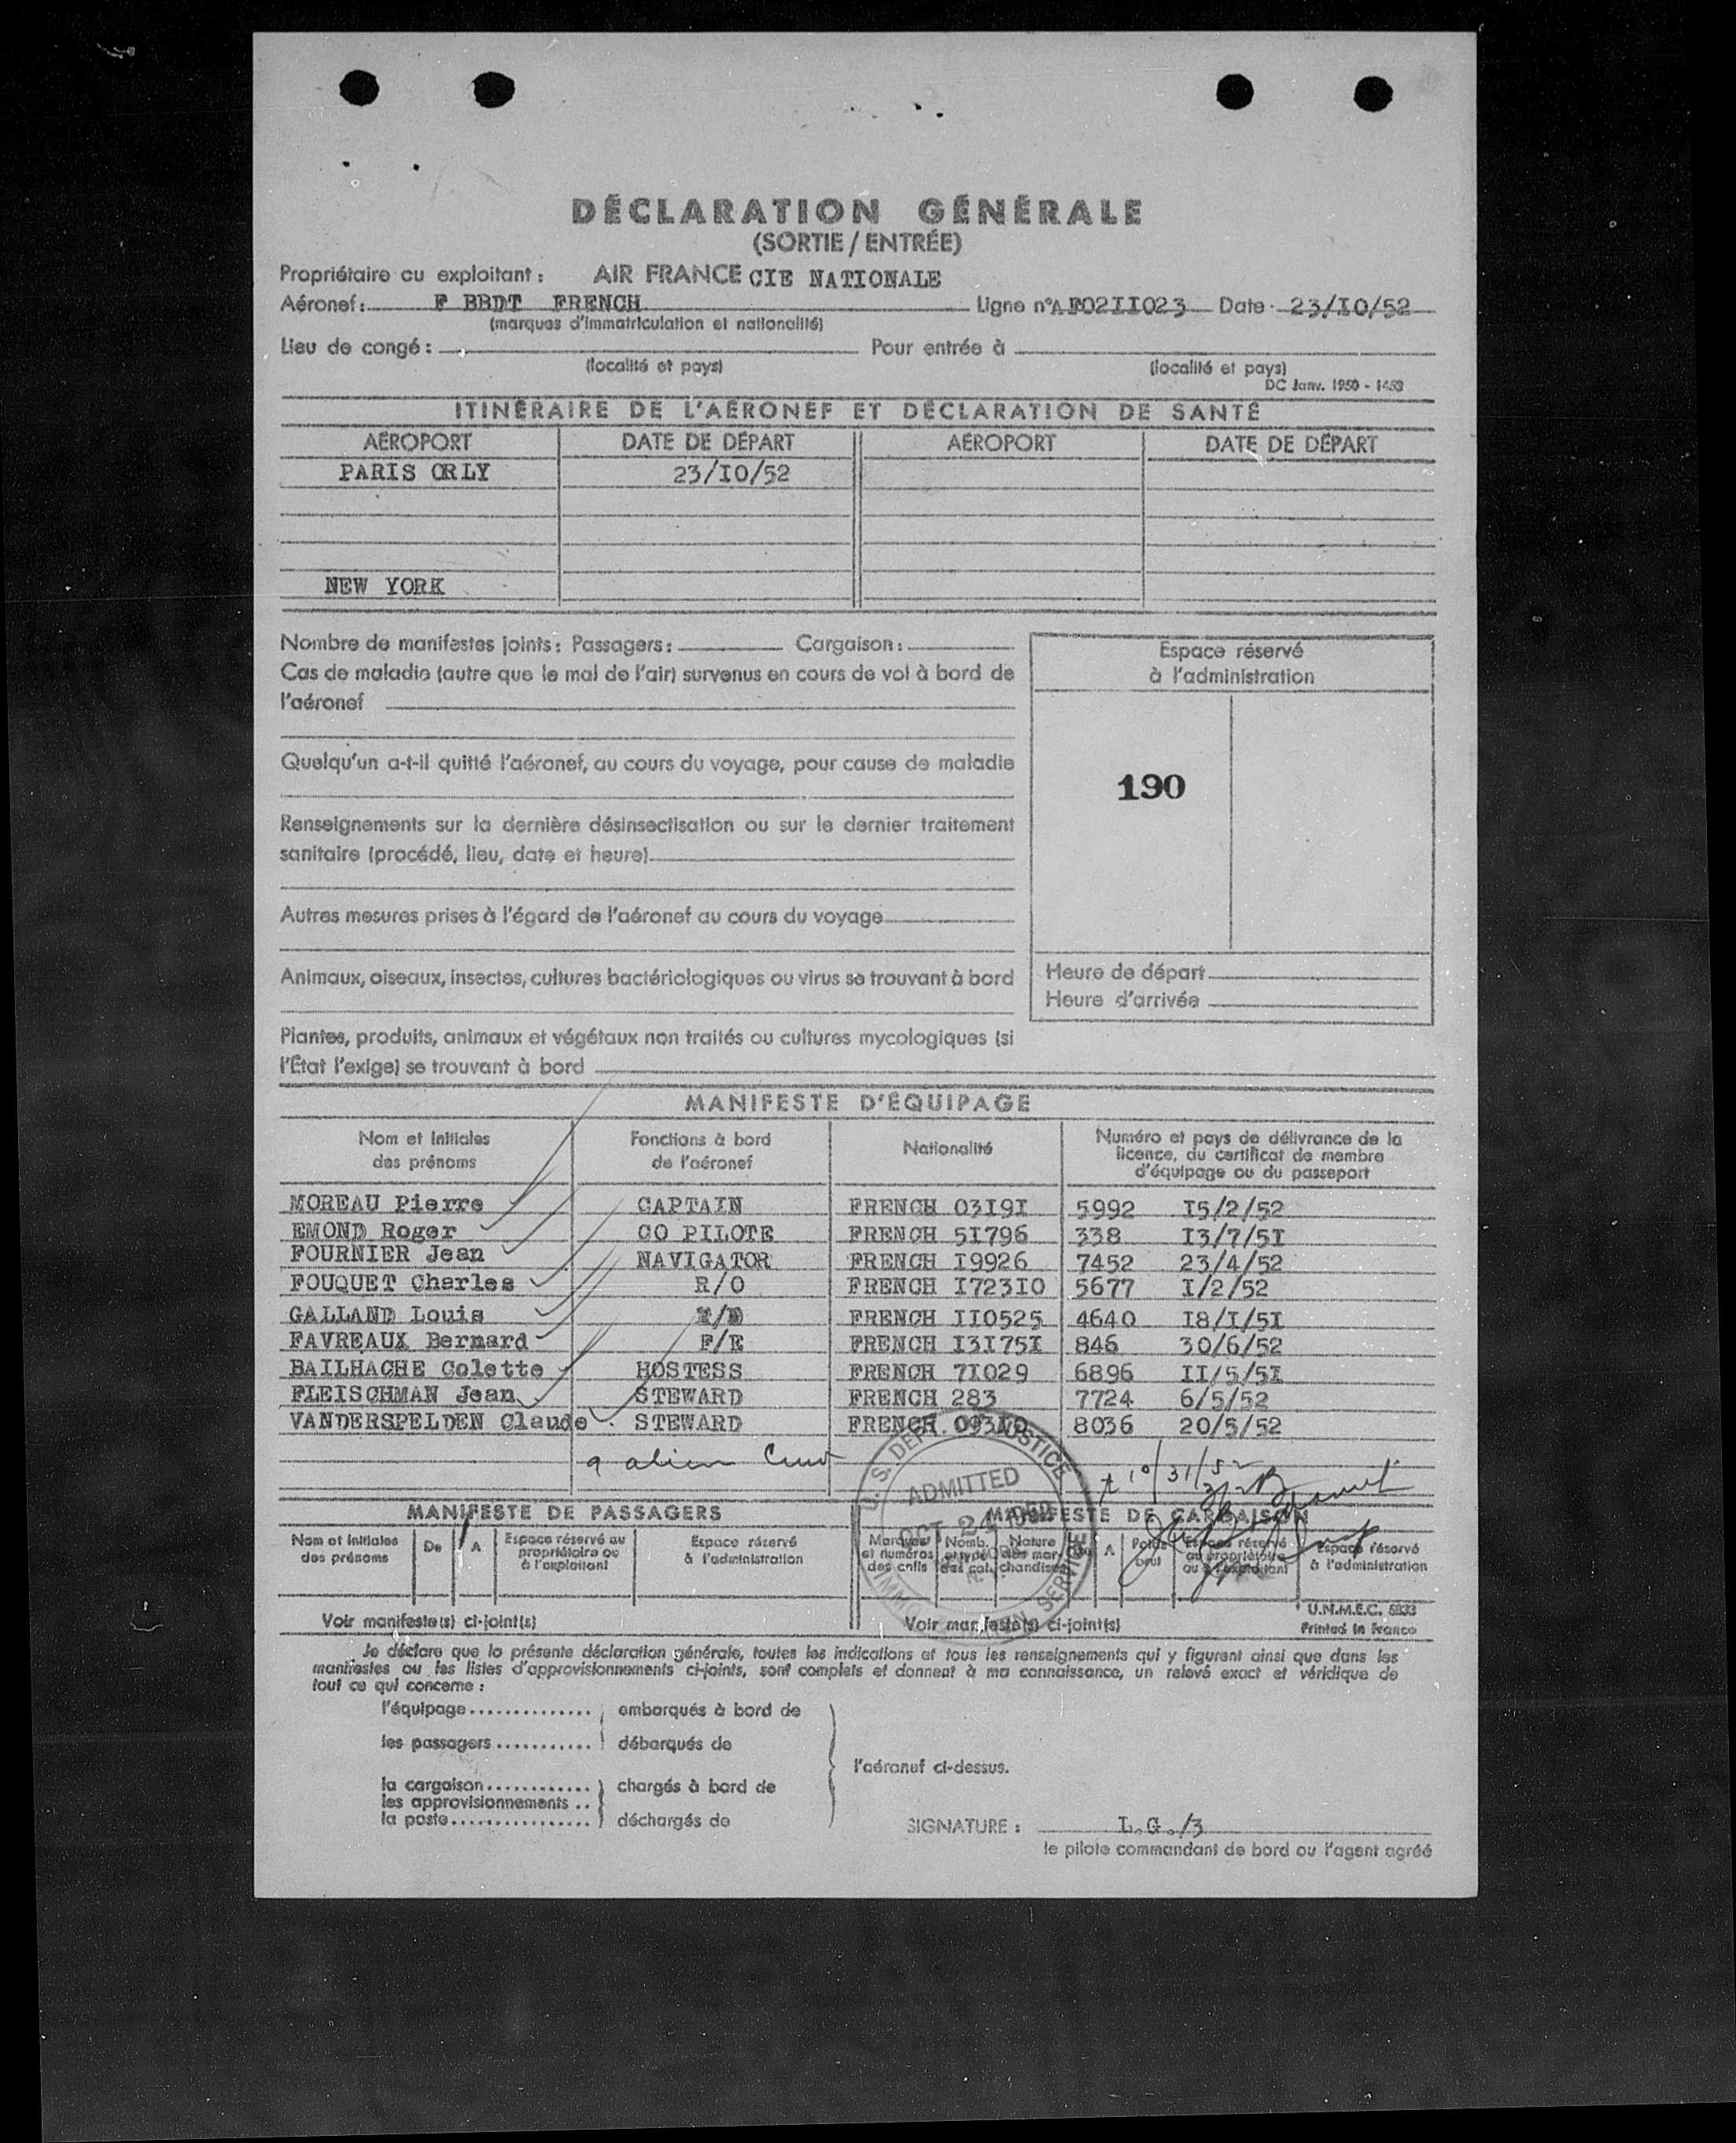 DÉCLARATION GÉNÉRALE
(SORTIE / ENTRÉE)
Propriétaire ou exploitant : AIR FRANCE CIE NATIONALE
Aéronef : F BBDT FRENCH Ligne n° AF02II023 Date 23/IO/52
(marques d'immatriculation et nationalité)
Lieu de congé : Pour entrée à
(localité et pays) (localité et pays)
DC Janv. 1950 - 1453
ITINÉRAIRE DE L'AÉRONEF ET DÉCLARATION DE SANTÉ
AÉROPORT DATE DE DÉPART AÉROPORT DATE DE DÉPART
PARIS ORLY 23/IO/52
NEW YORK
Nombre de manifestes joints : Passagers : Cargaison :
Cas de maladie (autre que le mal de l'air) survenus en cours de vol à bord de
l'aéronef
Quelqu'un a-t-il quitté l'aéronef, au cours du voyage, pour cause de maladie
Renseignements sur la dernière désinsectisation ou sur le dernier traitement
sanitaire (procédé, lieu, date et heure)
Autres mesures prises à l'égard de l'aéronef au cours du voyage
Animaux, oiseaux, insectes, cultures bactériologiques ou virus se trouvant à bord
Plantes, produits, animaux et végétaux non traités ou cultures mycologiques (si
l'État l'exige) se trouvant à bord
Espace réservé
à l'administration
190
Heure de départ
Heure d'arrivée
MANIFESTE D'ÉQUIPAGE
Nom et Initiales
des prénoms
Fonctions à bord
de l'aéronef
Nationalité
Numéro et pays de délivrance de la
licence, du certificat de membre
d'équipage ou du passeport
MOREAU Pierre CAPTAIN FRENCH 03I9I 5992 I5/2/52
EMOND Roger CO PILOTE FRENCH 5I796 338 I3/7/5I
FOURNIER Jean NAVIGATOR FRENCH I9926 7452 23/4/52
FOUQUET Charles R/O FRENCH I723IO 5677 I/2/52
GALLAND Louis FRENCH II0525 4640 I8/I/5I
FAVREAUX Bernard F/E FRENCH I3I75I 846 30/6/52
BAILHACHE Colette HOSTESS FRENCH 7I029 6896 II/5/5I
FLEISCHMAN Jean STEWARD FRENCH 283 7724 6/5/52
VANDERSPELDEN Claude STEWARD FRENCH 093IO 8036 20/5/52
9 alien Crew
10/31/52
U.S. DEPT. OF JUSTICE
ADMITTED
OCT 24 1952
IMMIGRATION SERVICE
MANIFESTE DE PASSAGERS MANIFESTE DE CARGAISON
Nom et initiales
des prénoms
De
A
Espace réservé au
propriétaire ou
à l'exploitant
Espace réservé
à l'administration
Marques
et numéros
des colis
Nomb.
et type
des col.
Nature
des mar-
chandises
A
Poids
brut
Espace réservé
au propriétaire
ou à l'exploitant
Espace réservé
à l'administration
Voir manifeste(s) ci-joint(s) Voir manifeste(s) ci-joint(s)
U.N.M.E.C. 5833
Printed in France
Je déclare que la présente déclaration générale, toutes les indications et tous les renseignements qui y figurent ainsi que dans les
manifestes ou les listes d'approvisionnements ci-joints, sont complets et donnent à ma connaissance, un relevé exact et véridique de
tout ce qui concerne :
l'équipage .............. embarqués à bord de
les passagers ........... débarqués de
l'aéronef ci-dessus.
la cargaison ............ chargés à bord de
les approvisionnements ..
la poste ................ déchargés de
SIGNATURE : L.G./3
le pilote commandant de bord ou l'agent agréé